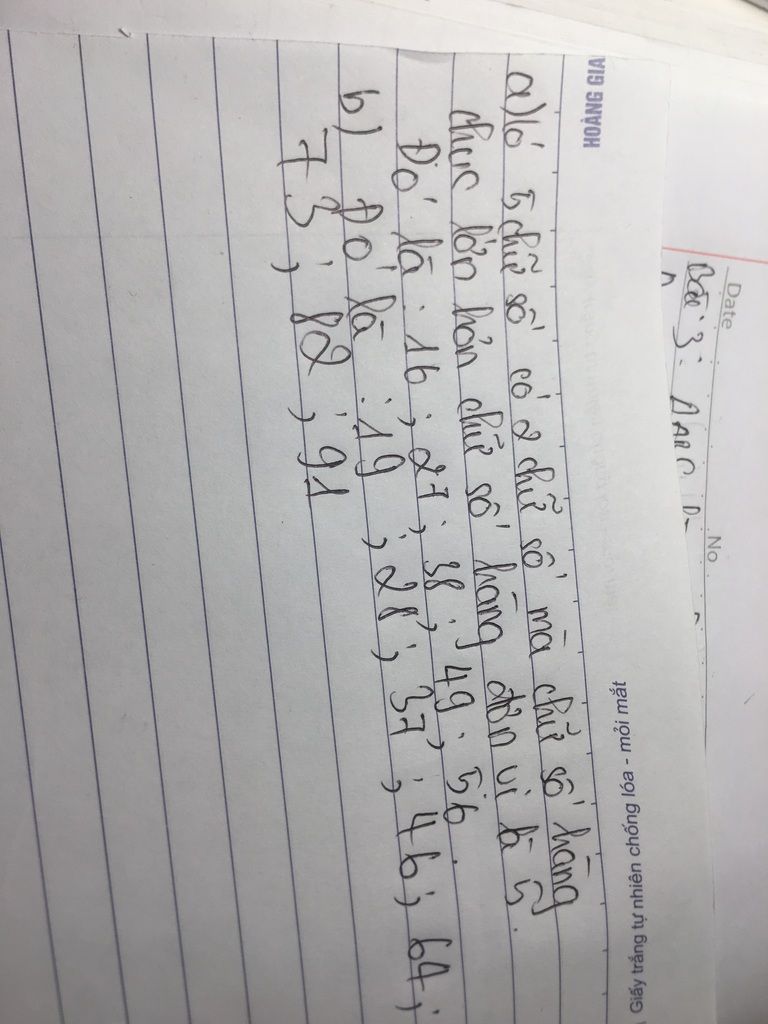 Date
No
Bài 3: Δ ABC
HOÀNG GIA
Giấy trắng tự nhiên chống lóa - mỏi mắt
a) Có 5 chữ số có 2 chữ số mà chữ số hàng
chục lớn hơn chữ số hàng đơn vị là 5.
Đó là: 16; 27; 38; 49; 56.
b) Đó là: 19; 28; 37; 46; 64;
73; 82; 91